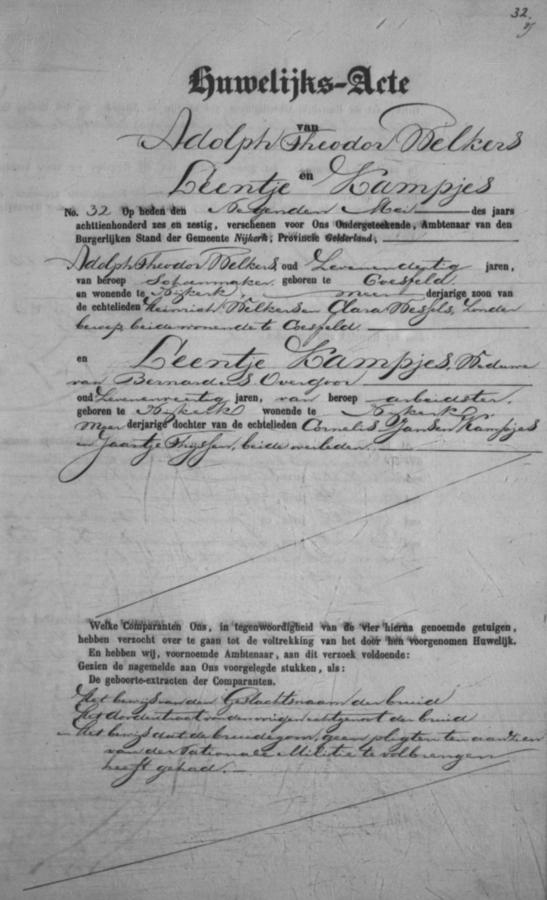 32.
Huwelijks-Acte
van
Adolph Theodor Welkers
en
Leentje Kampjes
No. 32 Op heden den Negenden Mei des jaars
achttienhonderd zes en zestig, verschenen voor Ons Ondergeteekende, Ambtenaar van den
Burgerlijken Stand der Gemeente Nijkerk, Provincie Gelderland,
Adolph Theodor Welkers, oud Zevenendertig jaren,
van beroep Schoenmaker geboren te Coesfeld
en wonende te Nijkerk, meerderjarige zoon van
de echtelieden Heinrich Welkers en Clara Wessels, zonder
beroep beide wonende te Coesfeld
en Leentje Kampjes, Weduwe
van Bernardus Overgoor
oud Zevenenveertig jaren, van beroep arbeidster,
geboren te Nijkerk wonende te Nijkerk,
meerderjarige dochter van de echtelieden Cornelis Jansen Kampjes
en Jaartje Thijssen, beide overleden.
Welke Comparanten Ons, in tegenwoordigheid van de vier hierna genoemde getuigen,
hebben verzocht over te gaan tot de voltrekking van het door hen voorgenomen Huwelijk.
En hebben wij, voornoemde Ambtenaar, aan dit verzoek voldoende:
Gezien de nagemelde aan Ons voorgelegde stukken, als:
De geboorte-extracten der Comparanten.
Het bewijs van den Geslachtsnaam der bruid
Het doodextract van den vorigen echtgenoot der bruid
en Het bewijs dat de bruidegom geen pligten ten aanzien
van de Nationale Militie te volbrengen
heeft gehad.